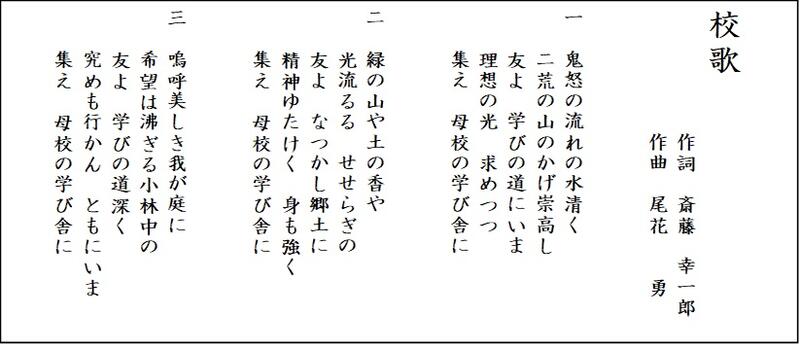 校歌
作詞　斎藤　幸一郎
作曲　尾花　　勇
一
鬼怒の流れの水清く
二荒の山のかげ崇高し
友よ　学びの道にいま
理想の光　求めつつ
集え　母校の学び舎に
二
緑の山や土の香や
光流るる　せせらぎの
友よ　なつかし郷土に
精神ゆたけく　身も強く
集え　母校の学び舎に
三
嗚呼美しき我が庭に
希望は沸ぎる小林中の
友よ　学びの道深く
究めも行かん　ともにいま
集え　母校の学び舎に